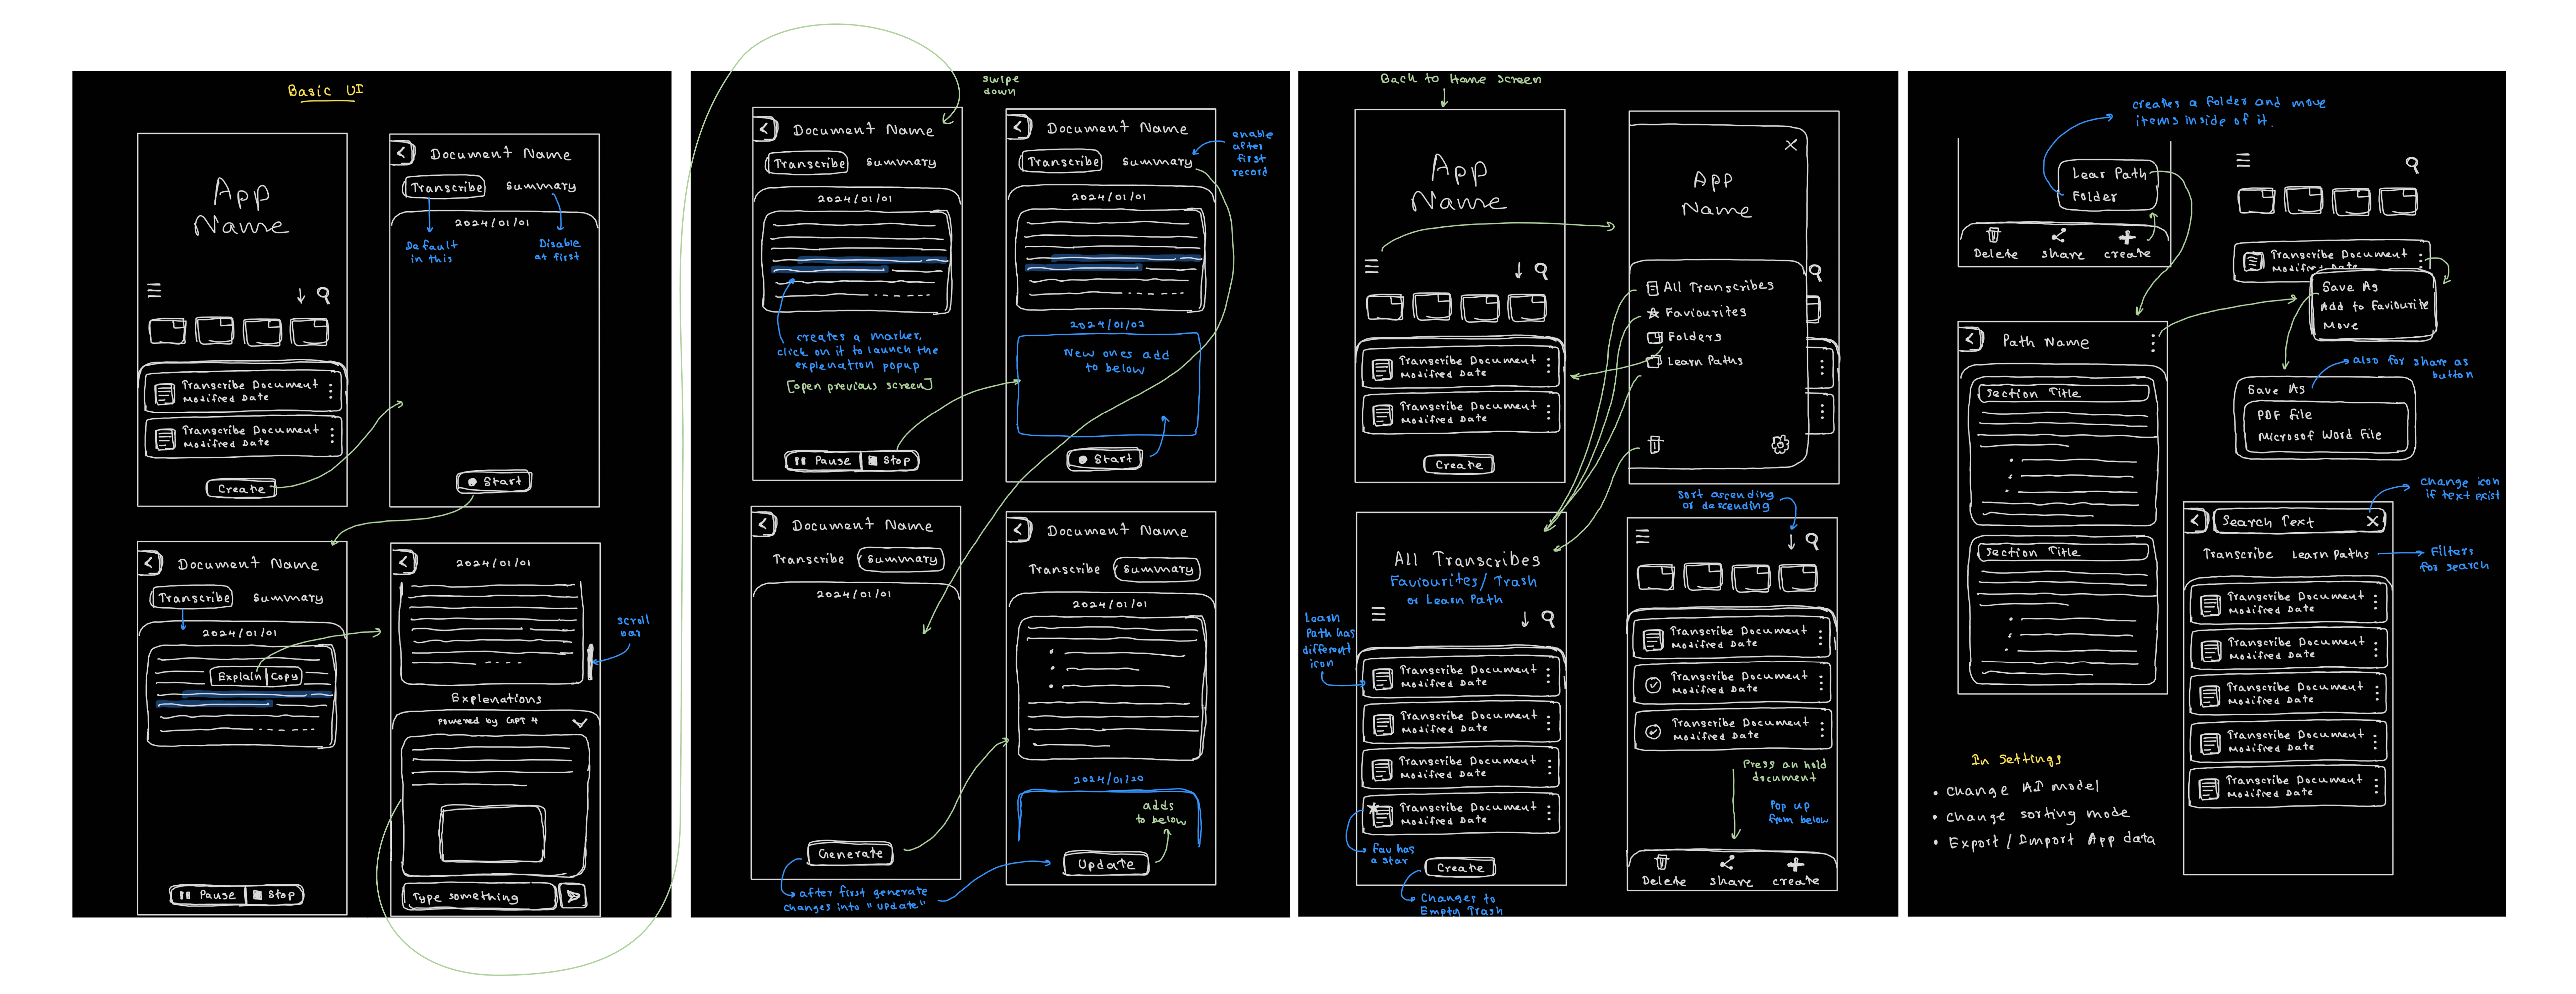 Basic UI
App
Name
Transcribe Document
Modifred Date
Transcribe Document
Modifred Date
Create
Document Name
Transcribe
Summary
2024/01/01
Default
in this
Disable
at first
Start
Document Name
Transcribe
Summary
2024/01/01
Explain
Copy
Pause
Stop
2024/01/01
scroll
bar
Explenations
Powered by GPT 4
Type something
swipe
down
Document Name
Transcribe
Summary
2024/01/01
creates a marker,
click on it to launch the
explenation popup
[open previous screen]
Pause
Stop
Document Name
Transcribe
Summary
enable
after
first
record
2024/01/01
2024/01/02
New ones add
to below
Start
Document Name
Transcribe
Summary
2024/01/01
Generate
after first generate
changes into "update"
Document Name
Transcribe
Summary
2024/01/01
2024/01/20
adds
to below
Update
Back to Home Screen
App
Name
Transcribe Document
Modifred Date
Transcribe Document
Modifred Date
Create
App
Name
All Transcribes
Faviourites
Folders
Learn Paths
All Transcribes
Faviourites/ Trash
or Learn Path
Learn
Path has
different
icon
Transcribe Document
Modifred Date
Transcribe Document
Modifred Date
Transcribe Document
Modifred Date
Transcribe Document
Modifred Date
Fav has
a star
Create
Changes to
Empty Trash
Sort ascending
or descending
Transcribe Document
Modifred Date
Transcribe Document
Modifred Date
Transcribe Document
Modifred Date
Press an hold
document
Pop up
from below
Delete
share
create
creates a folder and move
items inside of it.
Lear Path
Folder
Delete
share
create
Transcribe Document
Modifred Date
Save As
Add to Faviourite
Move
Path Name
Section Title
Section Title
also for share as
button
Save As
PDF file
Microsof Word File
change icon
if text exist
Search Text
Transcribe
Learn Paths
Filters
for search
Transcribe Document
Modifred Date
Transcribe Document
Modifred Date
Transcribe Document
Modifred Date
Transcribe Document
Modifred Date
Transcribe Document
Modifred Date
In Settings
• change AI model
• change sorting mode
• Export / Import App data